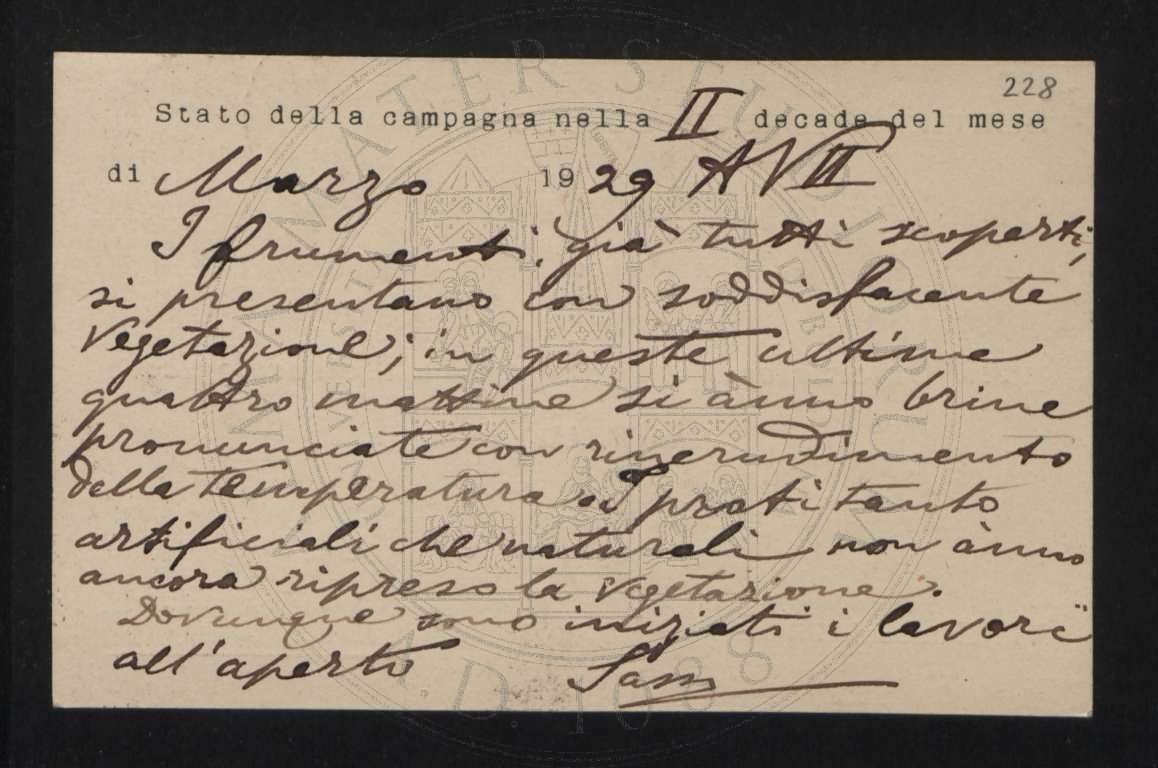 228
Stato della campagna nella II decade del mese
di Marzo 1929 A VII
I frumenti, già tutti scoperti,
si presentano con soddisfacente
vegetazione; in queste ultime
quattro mattine si ànno brine
pronunciate con rincrudimento
della temperatura. I prati tanto
artificiali che naturali non ànno
ancora ripreso la vegetazione.
Dovunque sono iniziati i lavori
all'aperto